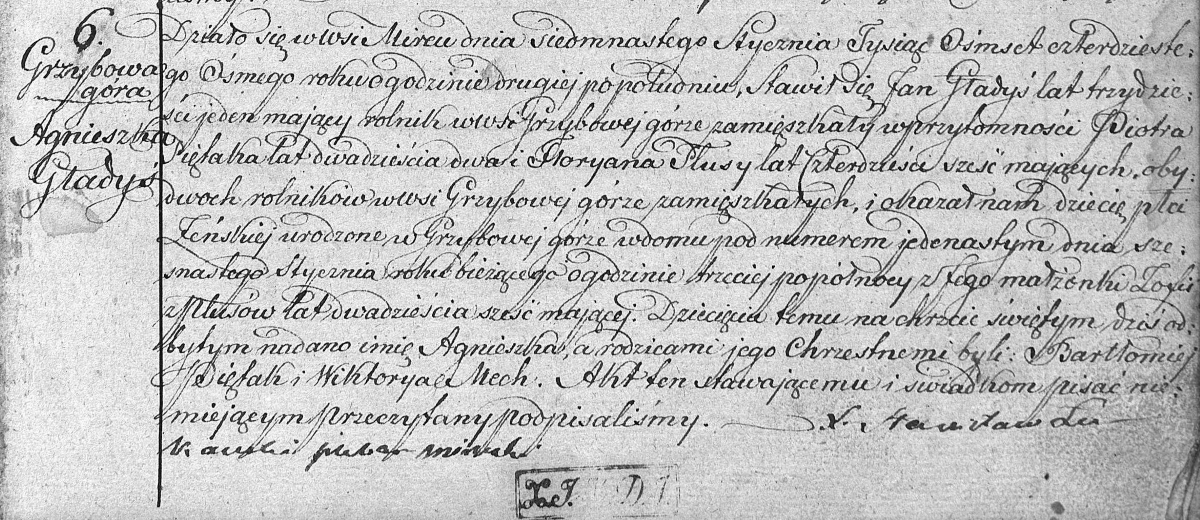 6.
Grzybowa
góra
Agnieszka
Gładyś
Działo się w wsi Mircu dnia siedmnastego Stycznia Tysiąc Ośmset czterdzieste:
go Ósmego roku o godzinie drugiej po południu, Stawił się Jan Gładyś lat trzydzie:
ści jeden mający rolnik w wsi Grzybowej górze zamięszkały w przytomności Piotra
Piętaka lat dwadzieścia dwa i Floryana Plusy lat Czterdzieści sześć mających, oby:
dwóch rolników w wsi Grzybowej górze zamięszkałych, i okazał nam dziecię płci
Żeńskiej urodzone w Grzybowej górze w domu pod numerem jedenastym dnia sze:
snastego Stycznia roku bieżącego o godzinie trzeciej po północy z Jego małżonki Zofii
z Plusów lat dwadzieścia sześć mającej. Dziecięciu temu na chrzcie świętym dziś od:
bytym nadano imię Agnieszka, a rodzicami jego Chrzestnemi byli: Bartłomiej
Piętak i Wiktorya Mech. Akt ten stawającemu i świadkom pisać nie:
miejącym przeczytany podpisaliśmy. X. Stanisław